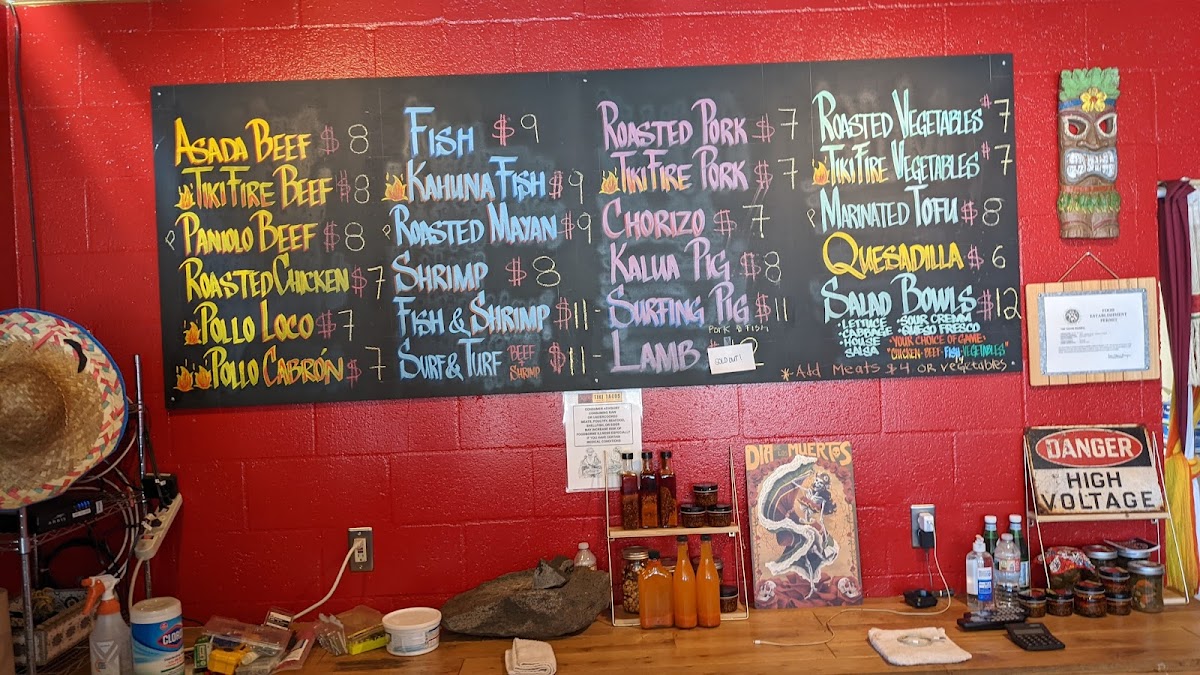 ASADA BEEF $8
TIKI FIRE BEEF $8
PANIOLO BEEF $8
ROASTED CHICKEN $7
POLLO LOCO $7
POLLO CABRÓN $7
FISH $9
KAHUNA FISH $9
ROASTED MAYAN $9
SHRIMP $8
FISH & SHRIMP $11-
SURF & TURF BEEF SHRIMP $11-
ROASTED PORK $7
TIKI FIRE PORK $7
CHORIZO $7
KALUA PIG $8
SURFING PIG $11
PORK & FISH
LAMB
SOLD OUT!
ROASTED VEGETABLES $7
TIKI FIRE VEGETABLES $7
MARINATED TOFU $8
QUESADILLA $6
SALAD BOWLS $12
• LETTUCE • SOUR CREMM
• CABBAGE • QUESO FRESCO
• HOUSE SALSA
• YOUR CHOICE OF GAME •
"CHICKEN • BEEF • FISH • VEGETABLES"
* Add Meats $4 or vegetables
FOOD ESTABLISHMENT PERMIT
TIKI TACOS
DIA de MUERTOS
DANGER
HIGH VOLTAGE
CLOROX